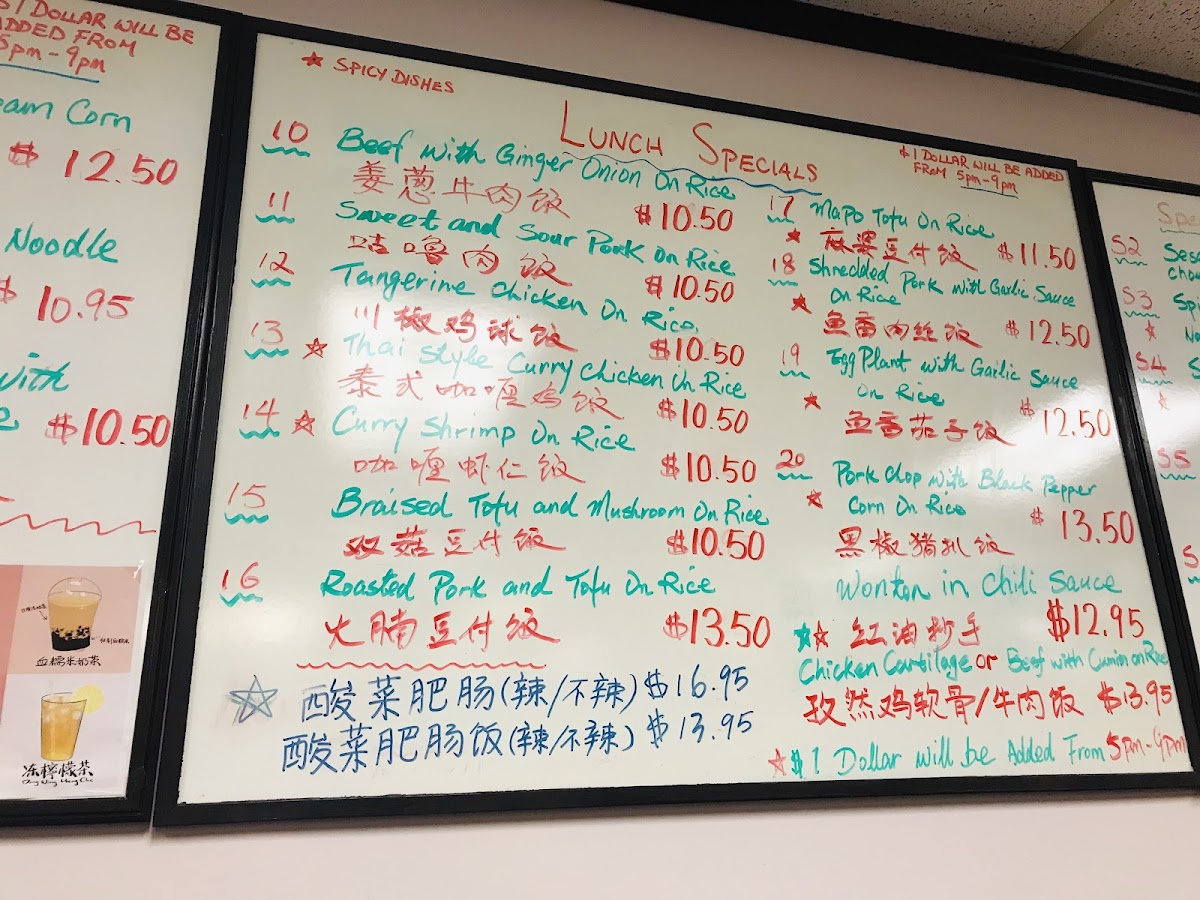 1 DOLLAR WILL BE
ADDED FROM
5pm-9pm
Corn
$ 12.50
Noodle
$ 10.95
with
$10.50
血糯米奶茶
冻柠檬茶
★ SPICY DISHES
LUNCH SPECIALS
$1 DOLLAR WILL BE ADDED
FROM 5pm-9pm
10 Beef with Ginger Onion On Rice
姜葱牛肉饭 $10.50
11 Sweet and Sour Pork on Rice
咕噜肉饭 $10.50
12 Tangerine Chicken On Rice
川椒鸡球饭 $10.50
13 ★ Thai Style Curry Chicken On Rice
泰式咖喱鸡饭 $10.50
14 ★ Curry Shrimp On Rice
咖喱虾仁饭 $10.50
15 Braised Tofu and Mushroom On Rice
双菇豆付饭 $10.50
16 Roasted Pork and Tofu On Rice
火腩豆付饭 $13.50
☆ 酸菜肥肠(辣/不辣) $16.95
酸菜肥肠饭(辣/不辣) $13.95
17 Mapo Tofu On Rice
★ 麻婆豆付饭 $11.50
18 Shredded Pork with Garlic Sauce
★ On Rice
鱼香肉丝饭 $12.50
19 Egg Plant with Garlic Sauce
★ On Rice
鱼香茄子饭 $12.50
20 Pork Chop with Black Pepper
★ Corn On Rice $13.50
黑椒猪扒饭
Wonton in Chili Sauce
★★ 红油抄手 $12.95
Chicken Cartilage or Beef with Cumin on Rice
孜然鸡软骨/牛肉饭 $13.95
★ $1 Dollar will be Added From 5pm-9pm
S2
S3
★
S4
★
S5